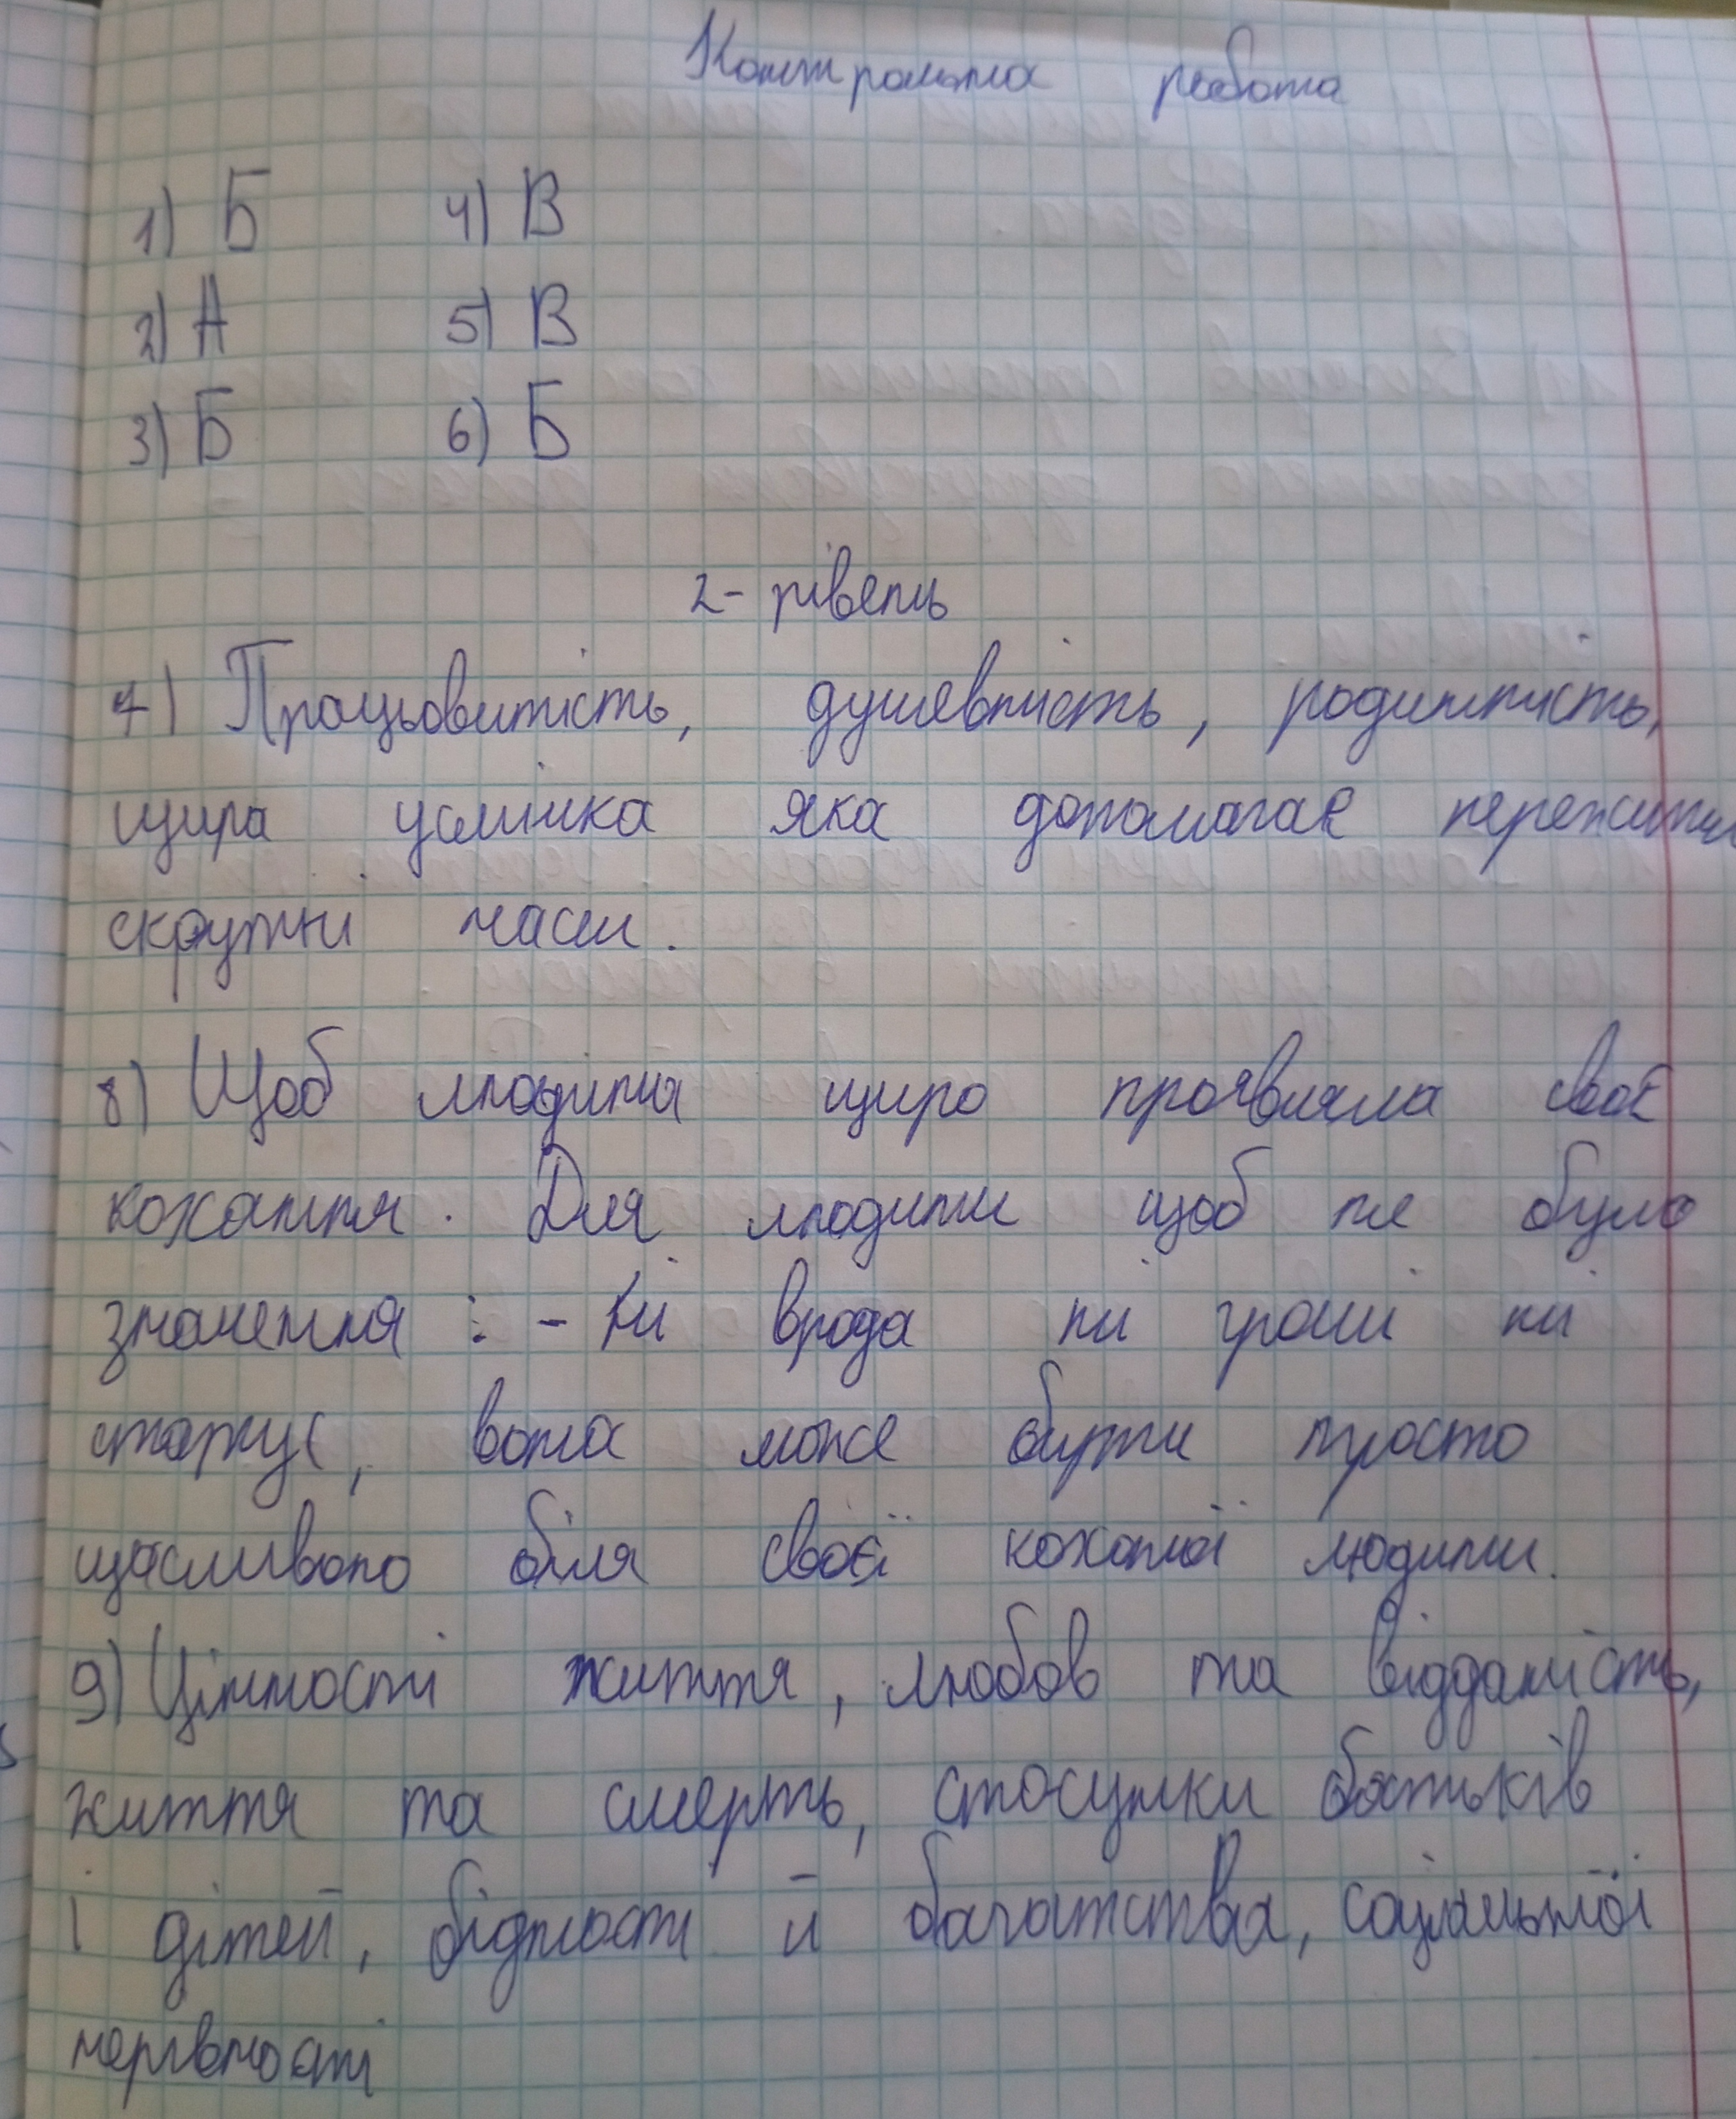 Контрольна робота
1) Б 4) В
2) А 5) В
3) Б 6) Б
2- рівень
7) Працьовитість, душевність, родинність,
щира усмішка яка допомагає пережити
скрутні часи.
8) Щоб людина щиро проявляла своє
кохання. Для людини щоб не було
значення : - Ні врода ні гроші ні
статус, вона може бути просто
щасливою біля своєї коханої людини.
9) Цінності життя, любов та відданість,
життя та смерть, стосунки батьків
і дітей, бідності й багатства, соціальної
нерівності